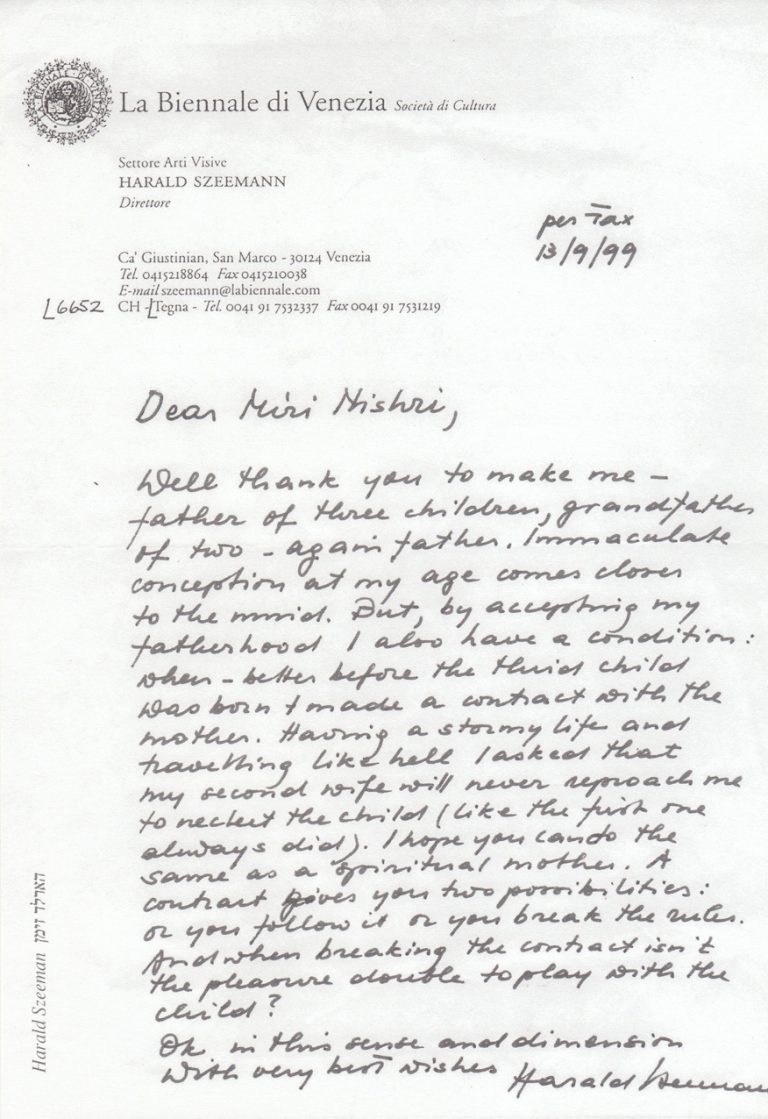 La Biennale di Venezia Società di Cultura
Settore Arti Visive
HARALD SZEEMANN
Direttore
per Fax
13/9/99
Ca' Giustinian, San Marco - 30124 Venezia
Tel. 0415218864 Fax 0415210038
E-mail szeemann@labiennale.com
6652 CH - Tegna - Tel. 0041 91 7532337 Fax 0041 91 7531219
Dear Miri Nishri,
Well thank you to make me –
father of three children, grandfather
of two – again father. Immaculate
conception at my age comes closer
to the mind. But, by accepting my
fatherhood I also have a condition:
when – better before the third child
was born I made a contract with the
mother. Having a stormy life and
travelling like hell I asked that
my second wife will never reproach me
to neclect the child (like the first one
always did). I hope you can do the
same as a spiritual mother. A
contract gives you two possibilities:
or you follow it or you break the rules.
And when breaking the contract isn't
the pleasure double to play with the
child?
Ok in this sense and dimension
With very best wishes Harald Szeemann
Harald Szeeman הארלד זימן